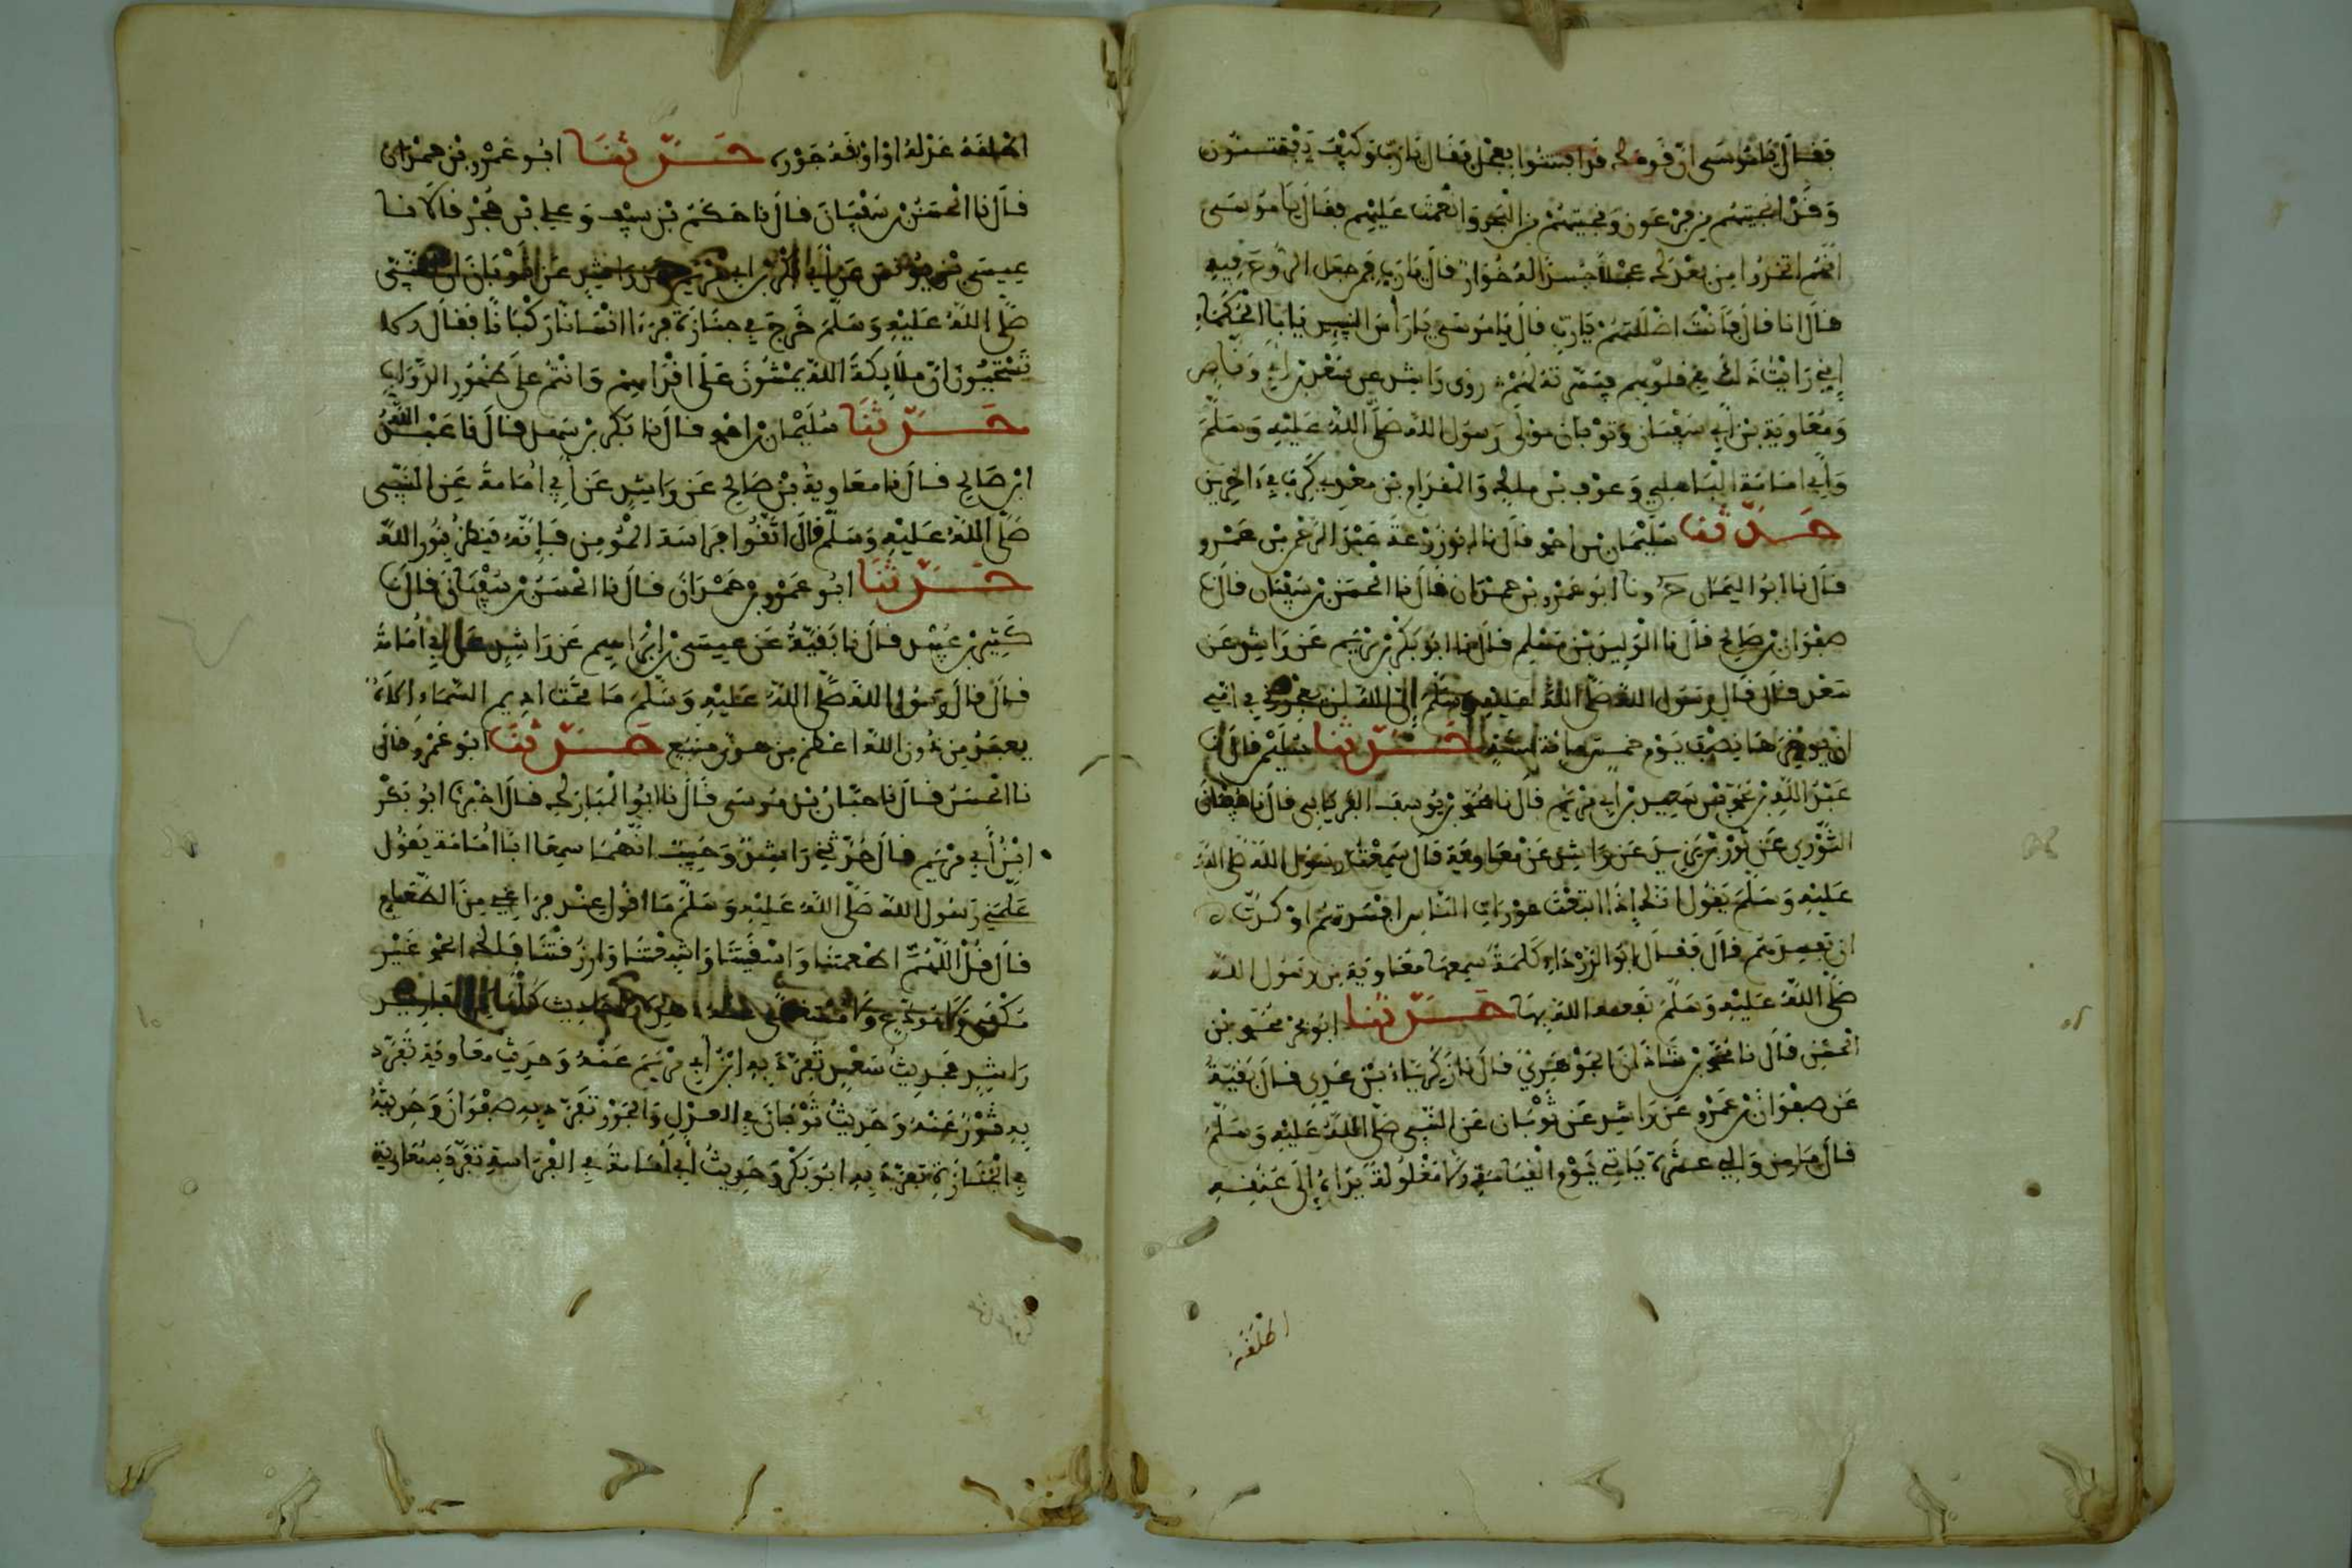 فقال يا موسى ان قومك قد افتتنوا بعجل فقال يا رب وكيف يفتتنون
وقد انجيتهم من فرعون ونجيتهم من البحر وانعمت عليهم فقال يا موسى
انهم اتخذوا من بعدك عجلا جسدا له خوار قال يا رب فمن جعل الروح فيه
قال انا قال فانت اضللتهم يا رب قال يا موسى يا راس النبيين يا ابا الحكماء
اني رايت ذلك في قلوبهم فيسرته لهم روى راشد عن سعد بن ابي وقاص
ومعاوية بن ابي سفيان وثوبان مولى رسول الله صلى الله عليه وسلم
وابي امامة الباهلي وعوف بن ملك والمقدام بن معدي كرب في اخرين
حدثنا سليمان بن احمد قال نا ابو زرعة عبد الرحمن بن عمرو
قال نا ابو اليمان ح ونا ابو عمرو بن حمدان قال نا الحسن بن سفيان قال نا
صفوان بن صالح قال نا الوليد بن مسلم قال نا ابو بكر بن مريم عن راشد عن
سعد قال قال رسول الله صلى الله عليه وسلم ان الله لن يعجزني في امتي
ان يؤخرها نصف يوم خمس مائة سنة حدثنا سليم قال نا
عبد الله بن محمد بن سعيد بن ابي مريم قال نا محمد بن يوسف الفريابي قال نا سفيان
الثوري عن ثور بن يزيد عن راشد عن معاوية قال سمعت رسول الله صلى الله
عليه وسلم يقول انك اذا اتبعت عورات الناس افسدتهم او كدت
ان تفسدهم قال فقال ابو الدرداء كلمة سمعها معاوية من رسول الله
صلى الله عليه وسلم نفعه الله بها حدثنا ابو بحر محمد بن
الحسن قال نا محمد بن شاذان الجوهري قال نا زكرياء بن عدي قال بقية
عن صفوان بن عمرو عن راشد عن ثوبان عن النبي صلى الله عليه وسلم
قال ما من والي عشرة ياتي يوم القيامة الا مغلولة يداه الى عنقه
اطلقه
اطلقه عدله او اوثقه جوره حدثنا ابو عمرو بن حمدان
قال نا الحسن بن سفيان قال نا حكم بن سيف وعلي بن حجر قالا نا
عيسى بن يونس عن ابي بكر بن ابي مريم عن راشد عن ثوبان ان النبي
صلى الله عليه وسلم خرج في جنازة فرءا انسانا ركبانا فقال الا
تستحيون ان ملائكة الله يمشون على اقدامهم وانتم على ظهور الدواب
حدثنا سليمان بن احمد قال نا بكر بن سهل قال نا عبد الله
ابن صالح قال نا معاوية بن صالح عن راشد عن ابي امامة عن النبي
صلى الله عليه وسلم قال اتقوا فراسة المؤمن فانه ينظر بنور الله
حدثنا ابو عمرو بن حمدان قال نا الحسن بن سفيان قال نا
كثير بن عبيد قال نا بقية عن عيسى بن ابراهيم عن راشد عن ابي امامة
قال قال رسول الله صلى الله عليه وسلم ما تحت اديم السماء اله
يعبد من دون الله اعظم من هوى متبع حدثنا ابو عمرو قال
نا الحسن قال نا حبان بن موسى قال نا ابو المبارك قال اخبرنا ابو بكر
ابن ابي مريم قال حدثني راشد وحبيب انهما سمعا ابا امامة يقول
علمني رسول الله صلى الله عليه وسلم ما اقول عند فراغي من الطعام
قال قل اللهم اطعمتنا واسقيتنا واشبعتنا وارزقتنا فلك الحمد غير
مكفي ولا مودع ولا مستغنى عنه هذه الاحاديث كلها
راشد فحديث سعد تفرد به ابن ابي مريم عنه وحديث معاوية تفرد
به ثور عنه وحديث ثوبان في العدل والجور تفرد به صفوان وحديثه
في الجنازة تفرد به ابو بكر وحديث ابي امامة في الفراسة تفرد به معاوية